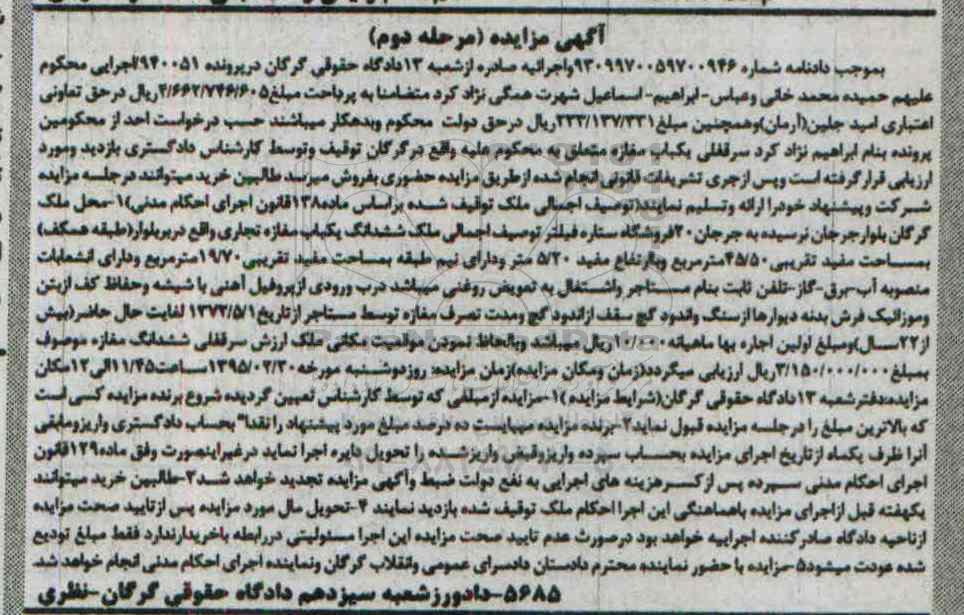 آگهی مزایده (مرحله دوم)
بموجب دادنامه شماره ۹۳۰۹۹۷۰۰۵۹۷۰۰۹۴۶واجرائیه صادره ازشعبه ۱۳دادگاه حقوقی گرگان درپرونده ۹۴۰۰۵۱/اجرایی محکوم
علیهم حمیده محمد خانی وعباس-ابراهیم-اسماعیل شهرت همگی نژاد کرد متضامنا به پرداخت مبلغ۴/۶۶۲/۷۴۶/۶۰۵ریال درحق تعاونی
اعتباری امید جلین(آرمان)وهمچنین مبلغ۲۳۳/۱۳۷/۳۳۱ریال درحق دولت محکوم وبدهکار میباشند حسب درخواست احد از محکومین
پرونده بنام ابراهیم نژاد کرد سرقفلی یکباب مغازه متعلق به محکوم علیه واقع درگرگان توقیف وتوسط کارشناس دادگستری بازدید ومورد
ارزیابی قرارگرفته است وپس ازجری تشریفات قانونی انجام شده ازطریق مزایده حضوری بفروش میرسد طالبین خرید میتوانند درجلسه مزایده
شرکت وپیشنهاد خودرا ارائه وتسلیم نمایند(توصیف اجمالی ملک توقیف شده براساس ماده۱۳۸قانون اجرای احکام مدنی)۱-محل ملک
گرگان بلوارجرجان نرسیده به جرجان ۲۰فروشگاه ستاره فیلتر توصیف اجمالی ملک ششدانگ یکباب مغازه تجاری واقع دربربلوار(طبقه همکف)
بمساحت مفید تقریبی۴۵/۵۰مترمربع وبالرتفاع مفید ۵/۲۰ متر ودارای نیم طبقه بمساحت مفید تقریبی۱۹/۷۰مترمربع ودارای انشعابات
منصوبه آب-برق-گاز-تلفن ثابت بنام مستاجر واشتغال به تعویض روغنی میباشد درب ورودی ازپروفیل آهنی با شیشه وحفاظ کف ازبتن
وموزائیک فرش بدنه دیوارها ازسنگ واندود گچ سقف ازاندود گچ ومدت تصرف مغازه توسط مستاجر ازتاریخ ۱۳۷۳/۵/۱ لغایت حال حاضر(بیش
از۲۲سال)ومبلغ اولین اجاره بها ماهیانه ریال میباشد وبالحاظ نمودن موقعیت مکانی ملک ارزش سرقفلی ششدانگ مغازه موصوف
بمبلغ۳/۱۵۰/۰۰۰/۰۰۰ریال ارزیابی میگردد(زمان ومکان مزایده)زمان مزایده: روزدوشنبه مورخه۱۳۹۵/۰۲/۳۰ساعت۱۱/۴۵الی۱۲مکان
مزایده:دفترشعبه ۱۳دادگاه حقوقی گرگان(شرایط مزایده)۱-مزایده ازمبلغی که توسط کارشناس تعیین گردیده شروع برنده مزایده کسی است
که بالاترین مبلغ را درجلسه مزایده قبول نماید۲-برنده مزایده میبایست ده درصد مبلغ مورد پیشنهاد را نقدا" بحساب دادگستری واریزومابقی
آنرا ظرف یکماه ازتاریخ اجرای مزایده بحساب سپرده واریزوقبض واریزشده را تحویل دایره اجرا نماید درغیراینصورت وفق ماده۱۲۹قانون
اجرای احکام مدنی سپرده پس ازکسرهزینه های اجرایی به نفع دولت ضبط وآگهی مزایده تجدید خواهد شد۳-طالبین خرید میتوانند
یکهفته قبل ازاجرای مزایده باهماهنگی این اجرا احکام ملک توقیف شده بازدید نمایند ۴-تحویل مال مورد مزایده پس ازتایید صحت مزایده
ازناحیه دادگاه صادرکننده اجراییه خواهد بود درصورت عدم تایید صحت مزایده این اجرا مسئولیتی دررابطه باخریدارندارد فقط مبلغ تودیع
شده عودت میشود۵-مزایده با حضور نماینده محترم دادستان دادسرای عمومی وانقلاب گرگان ونماینده اجرای احکام مدنی انجام خواهد شد.
۵۶۸۵-دادورزشعبه سیزدهم دادگاه حقوقی گرگان-نظری